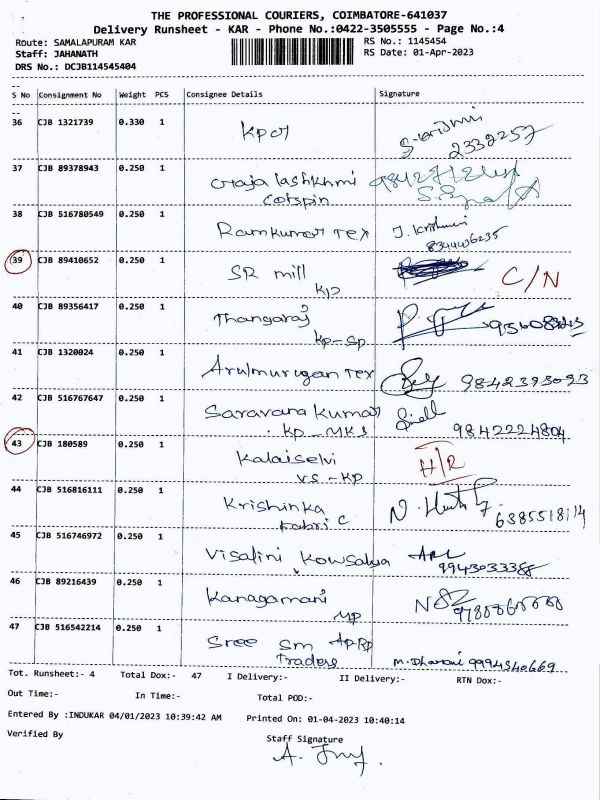 THE PROFESSIONAL COURIERS, COIMBATORE-641037
Delivery Runsheet - KAR - Phone No.:0422-3505555 - Page No.:4
Route: SAMALAPURAM KAR RS No.: 1145454
Staff: JAHANATH RS Date: 01-Apr-2023
DRS No.: DCJB114545404
S No Consignment No Weight PCS Consignee Details Signature
36 CJB 1321739 0.330 1 kpct
2332257
37 CJB 89378943 0.250 1 Oraja lashkhmi
cotspin
38 CJB 516780549 0.250 1 Ramkumar Tex J. Krishnan
8344436235
39 CJB 89410652 0.250 1 SR mill C/N
KP
40 CJB 89356417 0.250 1 Thangaraj
kp-sp
41 CJB 1320024 0.250 1 Arulmurugan Tex 9842393093
42 CJB 516767647 0.250 1 Saravana kumar
KP-MKS 9842224804
43 CJB 180589 0.250 1 Kalaiselvi H/R
VS-KP
44 CJB 516816111 0.250 1 Krishinka
Fabric 6385518114
45 CJB 516746972 0.250 1 Visalini Kowsalya
9943033388
46 CJB 89216439 0.250 1 Kanagamani
MP
47 CJB 516542214 0.250 1 Sree Sm AP-RP
Traders M. Dharani 9994340669
Tot. Runsheet:- 4 Total Dox:- 47 I Delivery:- II Delivery:- RTN Dox:-
Out Time:- In Time:- Total POD:-
Entered By :INDUKAR 04/01/2023 10:39:42 AM Printed On: 01-04-2023 10:40:14
Verified By Staff Signature